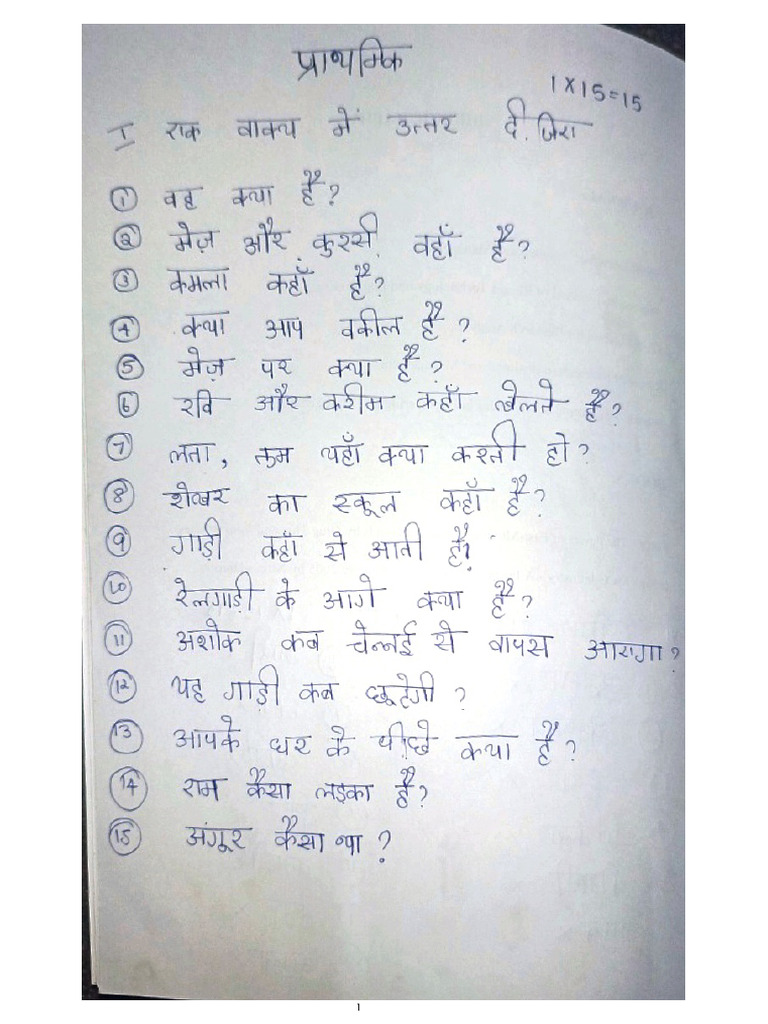 प्राथमिक
1 X 15 = 15
I एक वाक्य में उत्तर दीजिए
① वह क्या है?
② मेज़ और कुरसी वहाँ हैं?
③ कमला कहाँ है?
④ क्या आप वकील हैं?
⑤ मेज़ पर क्या है?
⑥ रवि और करीम कहाँ खेलते हैं?
⑦ लता, तुम यहाँ क्या करती हो?
⑧ शेखर का स्कूल कहाँ है?
⑨ गाड़ी कहाँ से आती है?
⑩ रेलगाड़ी के आगे क्या है?
⑪ अशोक कब चेन्नई से वापस आएगा?
⑫ यह गाड़ी कब छूटेगी?
⑬ आपके घर के पीछे क्या है?
⑭ राम कैसा लड़का है?
⑮ अंगूर कैसा था?
1